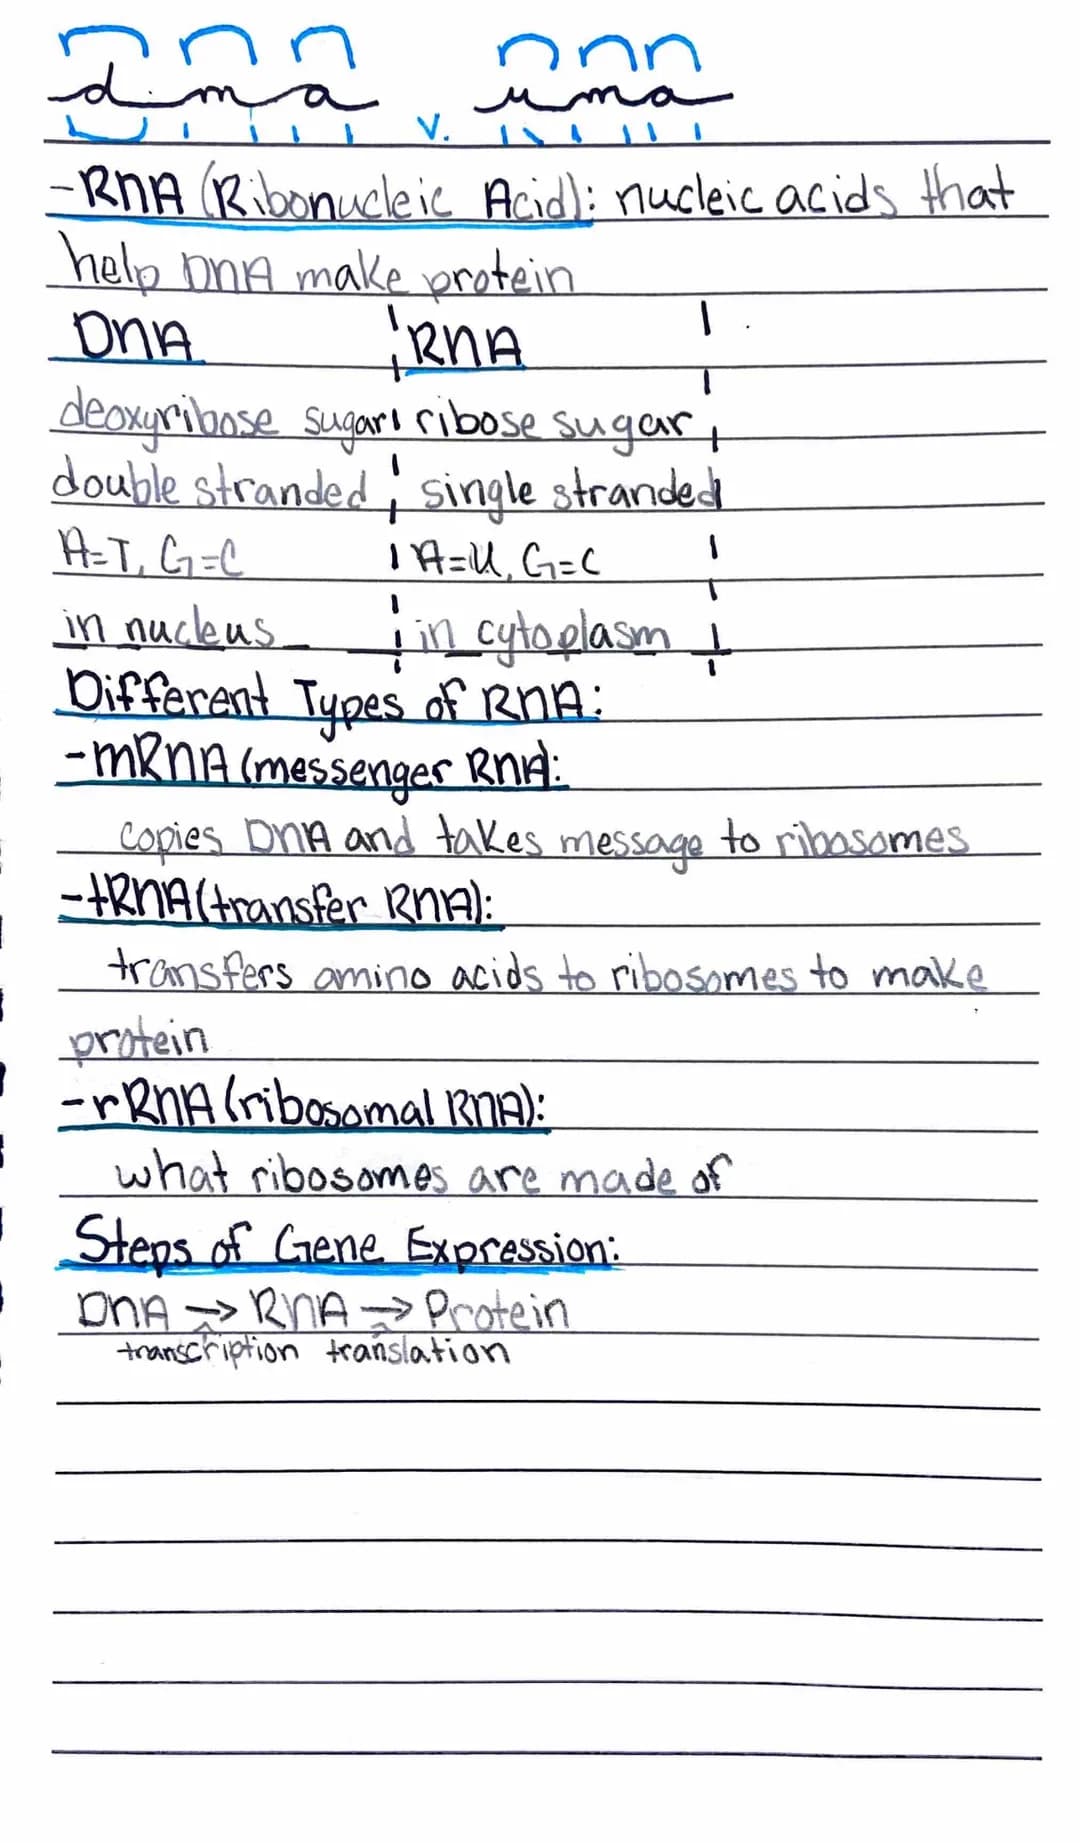 dna v. rna
-RNA (Ribonucleic Acid): nucleic acids that
help DNA make protein
DNA RNA
deoxyribose sugar ribose sugar
double stranded single stranded
A=T, G=C A=U, G=C
in nucleus in cytoplasm
Different Types of RNA:
-mRNA (messenger RNA):
copies DNA and takes message to ribosomes
-tRNA (transfer RNA):
transfers amino acids to ribosomes to make
protein
-rRNA (ribosomal RNA):
what ribosomes are made of
Steps of Gene Expression:
DNA → RNA → Protein
transcription translation